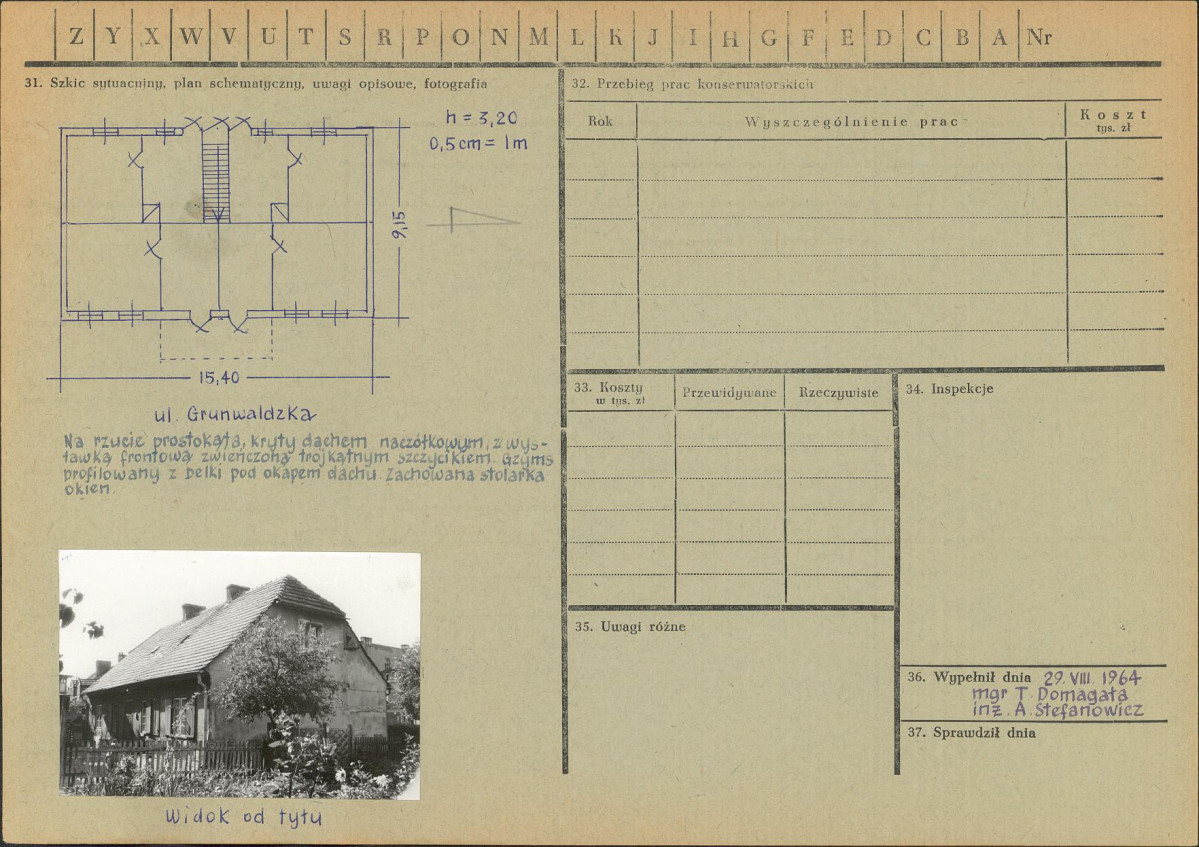 Z Y X W V U T S R P O N M L K J I H G F E D C B A Nr
31. Szkic sytuacyjny, plan schematyczny, uwagi opisowe, fotografia
h = 3,20
0,5 cm = 1 m
9,15
15,40
ul. Grunwaldzka
Na rzucie prostokąta, kryty dachem naczółkowym, z wys-
tawką frontową zwieńczoną trójkątnym szczycikiem. Gzyms
profilowany z belki pod okapem dachu. Zachowana stolarka
okien.
Widok od tyłu
32. Przebieg prac konserwatorskich
Rok
Wyszczególnienie prac
Koszt
tys. zł
33. Koszty
w tys. zł
Przewidywane
Rzeczywiste
34. Inspekcje
35. Uwagi różne
36. Wypełnił dnia 29. VIII. 1964
mgr T. Domagała
inż. A. Stefanowicz
37. Sprawdził dnia